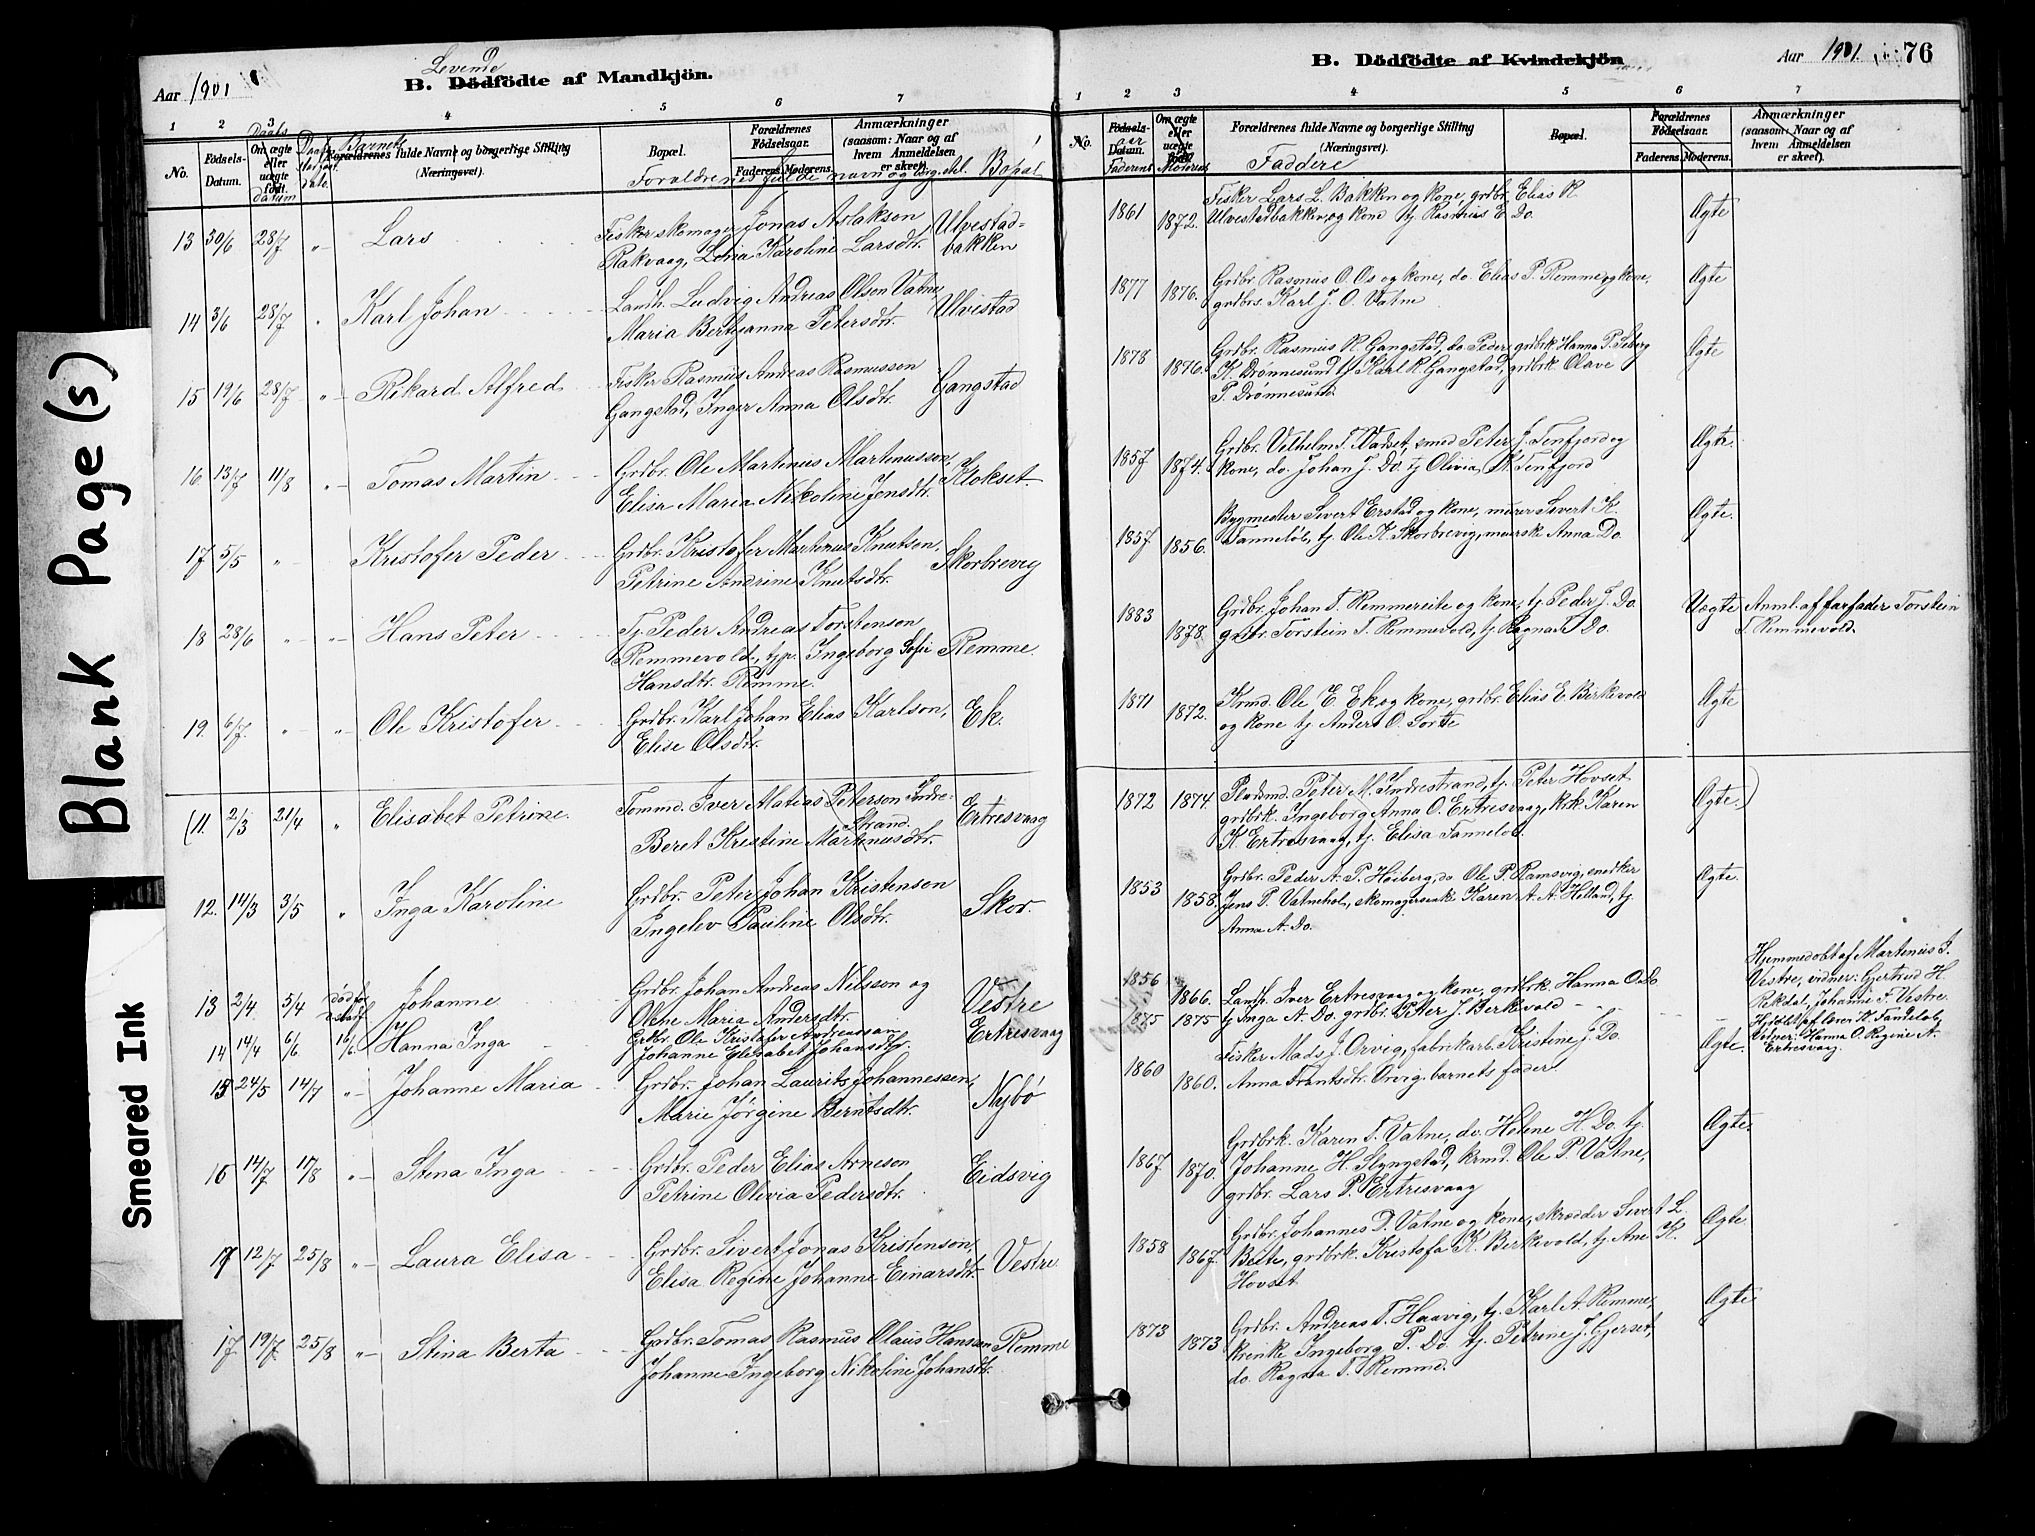 Blank Page(s)
Smeared Ink
Aar 1901
Levende
B. Dödfödte af Mandkjön.
1 2 3 4 5 6 7
No.
Födsels-Datum.
Daabs
Om ægte eller uægte født.
datum
Barnets
Forældrenes fulde Navne og borgerlige Stilling
(Næringsvei).
Bopæl.
Forældrenes Födselsaar.
Faderens. Moderens.
Anmærkninger
(saasom: Naar og af hvem Anmeldelsen er skeet).
Forældrenes fulde navn og borg. st. Bopæl
13 30/6 28/7 " Lars
Fisker skomager Jonas Aslakson
Rakvaag, Lina Karoline Larsdtr.
Ulvestad-
bakken
14 3/6 28/7 " Karl Johan
Landh. Ludvig Andreas Olson Vatne
Maria Bertjeanna Petersdtr.
Ulvestad
15 19/6 28/7 " Rikard Alfred
Fisker Rasmus Andreas Rasmussen
Gangstad, Inger Anna Olsdtr.
Gangstad
16 13/7 11/8 " Tomas Martin
Grdbr. Ole Martinus Martinusson,
Elisa Maria Nikoline Jensdtr.
Klokset
17 5/5 " Kristofer Peder
Grdbr. Kristofer Martinus Knutson,
Petrine Andrine Knutsdtr.
Skorbrevig
18 28/6 " " Hans Peter
Tj. Peder Andreas Torstenson
Remmevold, tjp. Ingeborg Sofie
Hansdtr. Remme.
Remme.
19. 6/7 " " Ole Kristofer
Grdbr. Karl Johan Elias Karlson,
Elise Olsdtr.
Ek.
(11. 2/3 21/4 " Elisabet Petrine.
Tømmd. Iver Matias Peterson Indre-
Strand.
Beret Kristine Martinusdtr.
Ertresvaag
12. 14/3 3/5 " Inga Karoline
Grdbr. Peter Johan Kristenson
Ingelev Pauline Olsdtr.
Skor.
13 2/4 5/4 Johanne
Grdbr. Johan Andreas Nilsson og
Olene Maria Andersdtr.
Vestre
14 14/4 6/6 16/6 Hanna Inga
Grdbr. Ole Kristofer Andreassan
Johanne Elisabet Johansdtr.
Ertresvaag
15 24/5 14/7 " Johanne Maria
Grdbr. Johan Laurits Johannessen,
Marie Jørgine Berntsdtr.
Nybø
16 14/7 11/8 " Stina Inga
Grdbr. Peder Elias Arneson
Petrine Olivia Pedersdtr.
Eidsvig
17 12/7 25/8 " Laura Elisa
Grdbr. Sivert Jonas Kristenson,
Elisa Regine Johanne Einarsdtr.
Vestre
17 19/7 25/8 " Stina Berta
Grdbr. Tomas Rasmus Olaus Hansen
Johanne Ingeborg Nikoline Johansdtr.
Remme
B. Dödfödte af Kvindekjön
Aar 1901. 76
1 2 3 4 5 6 7
No.
Födsels-Datum.
aar
Faderens
Om ægte eller uægte født.
Moderens
Forældrenes fulde Navne og borgerlige Stilling
(Næringsvei).
Faddere
Bopæl.
Forældrenes Födselsaar.
Faderens. Moderens.
Anmærkninger
(saasom: Naar og af hvem Anmeldelsen er skeet).
1861 1872.
Fisker Lars L. Bakken og kone, grdbr. Elias R.
Ulvestadbakken og kone tj. Rasmus E. Do.
Ægte
1877 1876.
Grdbr. Rasmus O. Os og kone, do. Elias P. Remme og kone,
grdbrs. Karl J. O. Vatne
Ægte
1878 1876.
Grdbr. Rasmus R. Gangstad, do. Peder, grdbrk. Hanna P.
K. Drønnesund tj. Karl R. Gangstad, grdbrk. Olave
P. Drønnesund.
Ægte
1857 1874.
Grdbr. Vilhelm T. Vadset, smed Peter J. Tenfjord og
kone, do. Johan J. Do. tj. Olivia K. Tenfjord
Ægte.
1857 1856.
Bygmester Sivert Erstad og kone, murer Sivert K.
Tanneløb, tj. Ole K. Skorbrevig, mursk. Anna Do.
Ægte.
1883 1878.
Grdbr. Johan T. Remmereite og kone, tj. Peder J. Do.
grdbr. Torstein T. Remmevold, tj. Ragna T. Do.
Uægte
Anml. af farfader Torstein
T. Remmevold.
1871 1872.
Krmd. Ole E. Ek og kone, grdbr. Elias E. Berkevold
og kone tj. Anders O. Sorte
Ægte
1872 1874
Pladsmd. Peter M. Indrestrand, tj. Peter Hovset
grdbrk. Ingeborg Anna O. Ertresvaag, krk. Karen
K. Ertresvaag, tj. Elisa Tanneløb.
Ægte.)
1853 1858.
Grdbr. Peder A. P. Høiberg, do Ole P. Ramsvig, snedker
Jens P. Vatnehol, skomagerenke Karen A. A. Helland, tj.
Anna A. Do.
Ægte.
1856 1866.
Landh. Iver Ertresvaag og kone, grdbrk. Hanna O. Do
Hjemmedøbt af Martinus I.
Vestre, vidner: Gjertrud H.
Rekdal, Johanne F. Vestre.
1875 1875
tj. Inga A. Do. grdbr. Petter J. Berkevold
Hjdøbt af lærer K. Tandeløb,
Vidner: Hanna O. Regine A.
Ertresvaag.
1860 1860.
Fisker Mads J. Orvig, fabrikarb. Kristine J. Do.
Anna Frantsdtr. Orvig, barnets fader
Ægte.
1867 1870.
Grdbrk. Karen T. Vatne, do. Helene H. Do. tj.
Johanne H. Slyngstad, krmd. Ole P. Vatne,
grdbr. Lars P. Ertresvaag
Ægte.
1858 1867.
Grdbr. Johannes D. Vatne og kone, skrædder Sivert L.
Beite, grdbrk. Kristofa K. Berkevold, tj. Ane K.
Hovset
Ægte
1873 1873
Grdbr. Andreas T. Haavig, tj. Karl A. Remme,
krenke Ingeborg P. Do. tj. Petrine J. Gjerset,
do. Ragna T. Remme.
Ægte